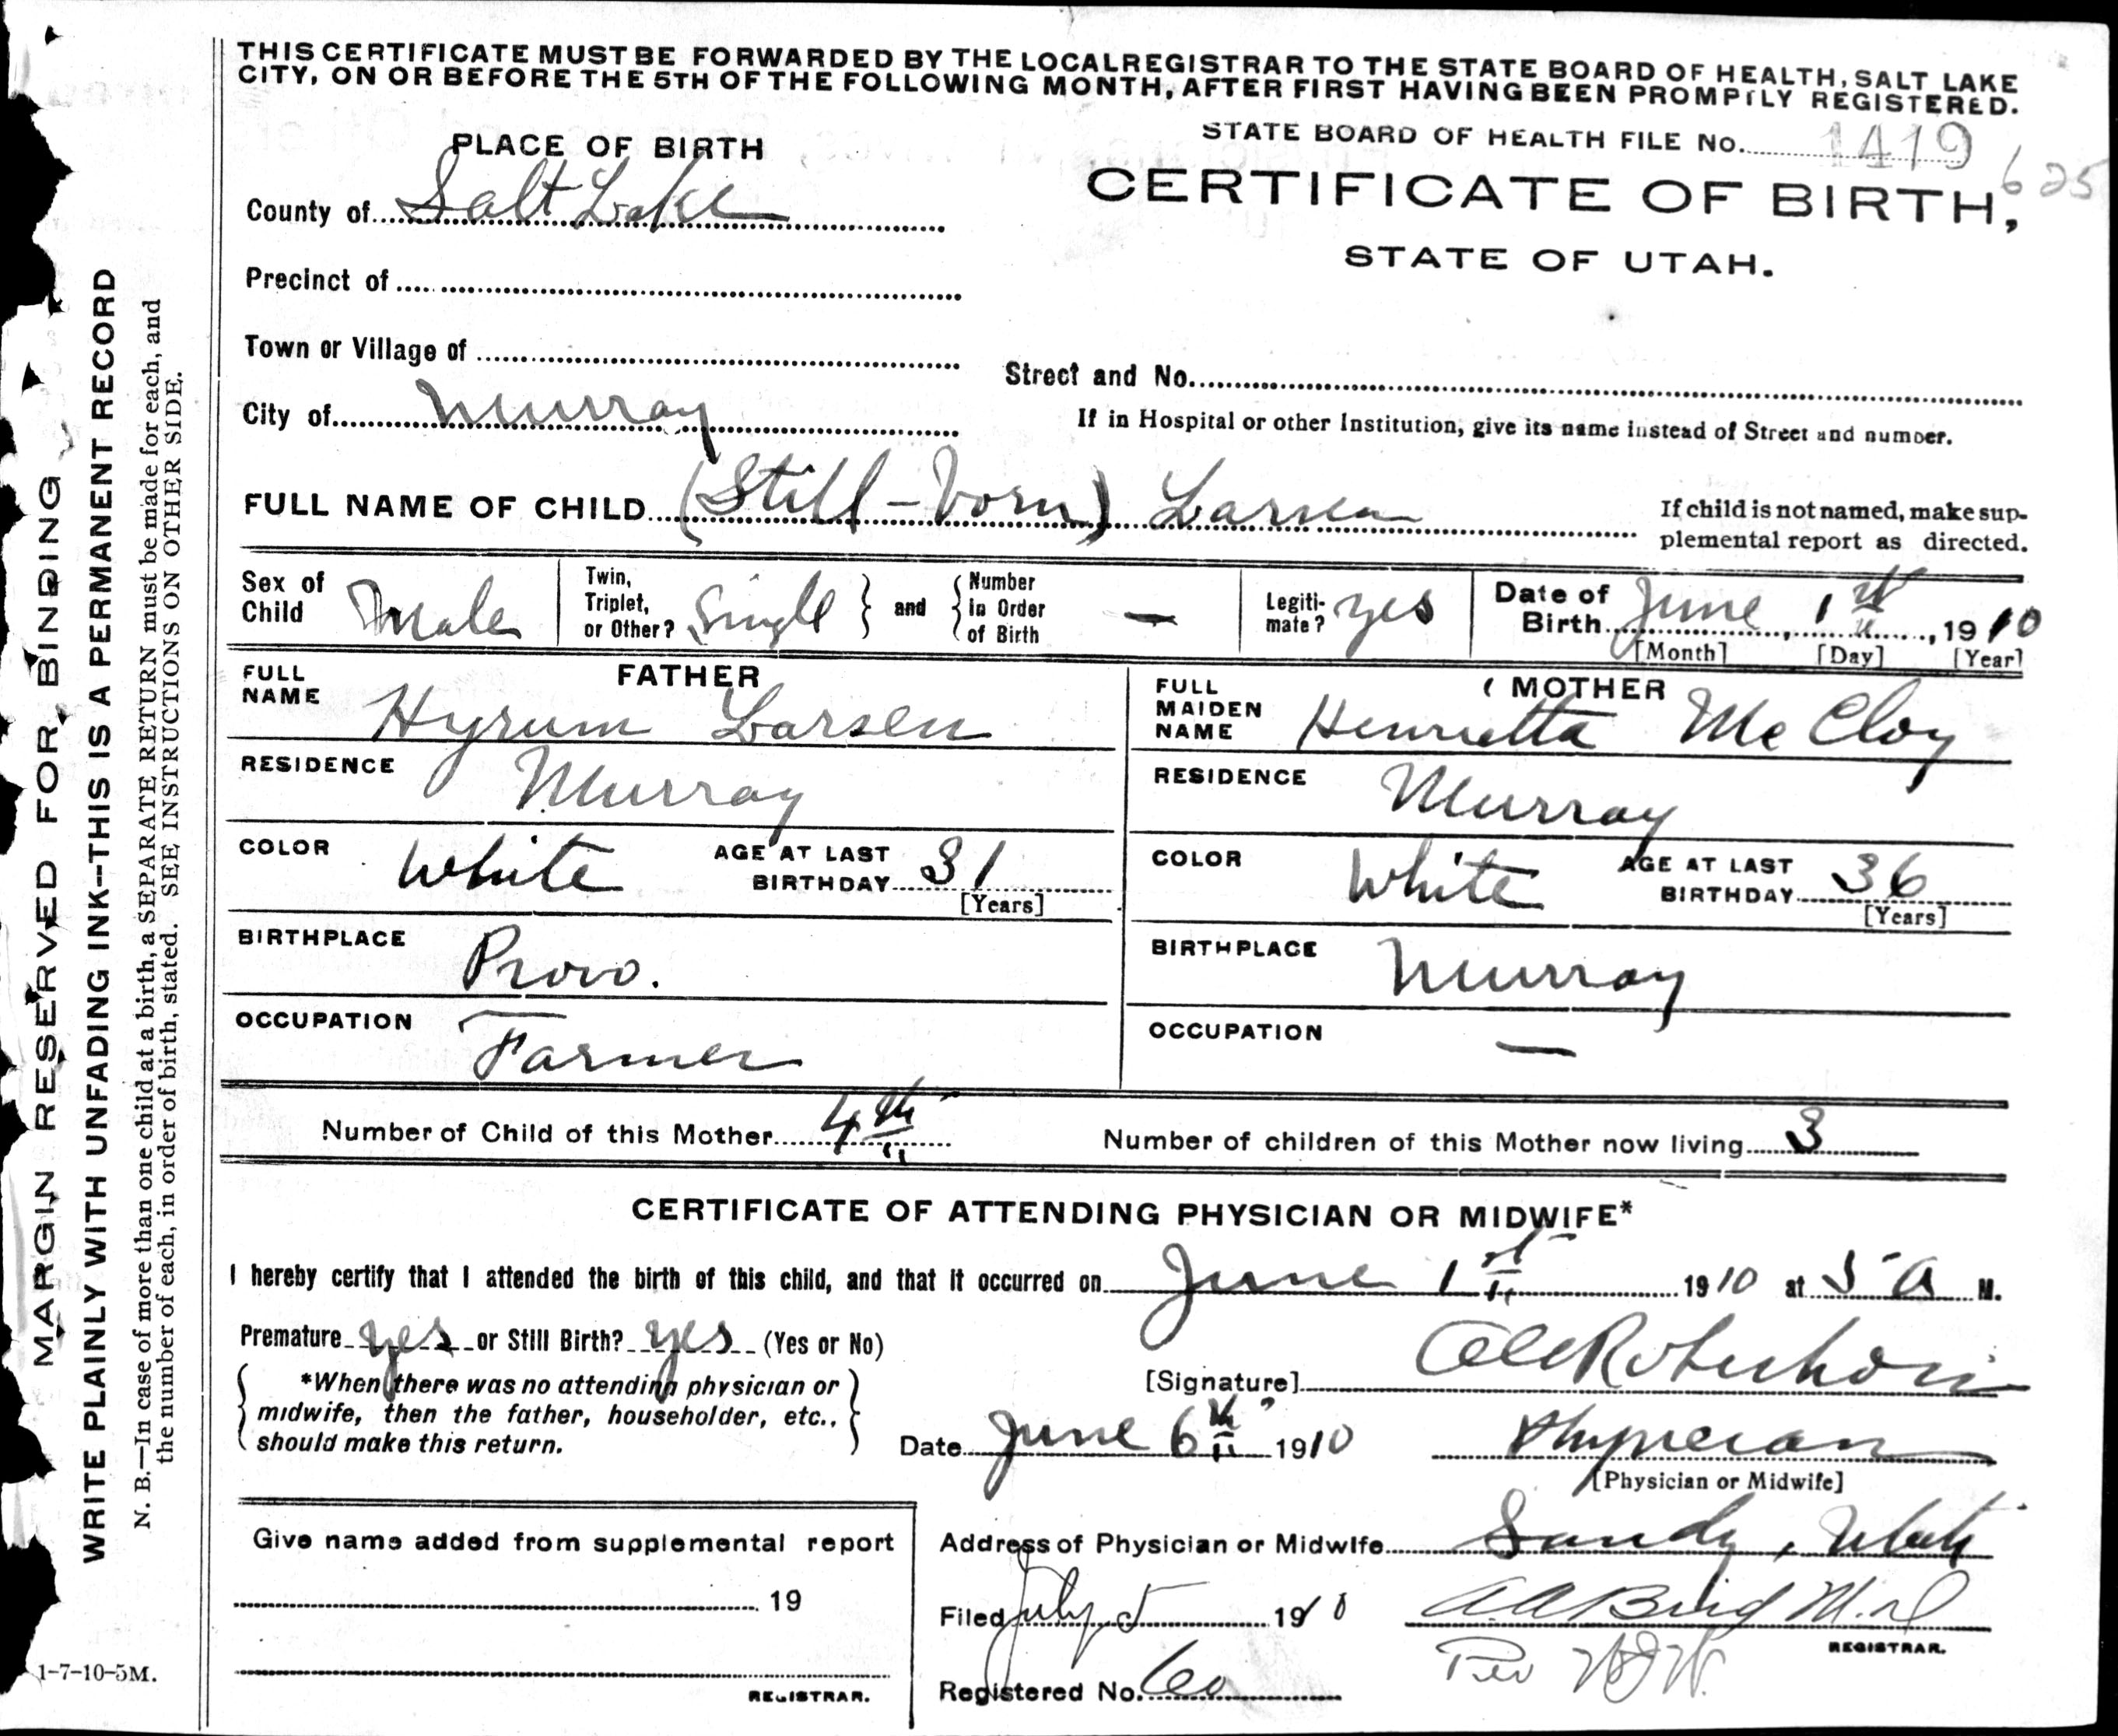 THIS CERTIFICATE MUST BE FORWARDED BY THE LOCAL REGISTRAR TO THE STATE BOARD OF HEALTH, SALT LAKE
CITY, ON OR BEFORE THE 5TH OF THE FOLLOWING MONTH, AFTER FIRST HAVING BEEN PROMPTLY REGISTERED.
STATE BOARD OF HEALTH FILE No. 1419
625
CERTIFICATE OF BIRTH,
STATE OF UTAH.
PLACE OF BIRTH
County of Salt Lake
Precinct of
Town or Village of
Street and No.
City of Murray
If in Hospital or other Institution, give its name instead of Street and number.
FULL NAME OF CHILD (Still-born) Larsen
If child is not named, make sup-
plemental report as directed.
Sex of Child Male
Twin, Triplet, or Other? Single and Number in Order of Birth —
Legiti-mate? yes
Date of Birth June 1st, 1910
[Month] [Day] [Year]
FATHER
FULL NAME Hyrum Larsen
RESIDENCE Murray
COLOR White AGE AT LAST BIRTHDAY 31
[Years]
BIRTHPLACE Provo.
OCCUPATION Farmer
MOTHER
FULL MAIDEN NAME Henrietta McCloy
RESIDENCE Murray
COLOR White AGE AT LAST BIRTHDAY 36
[Years]
BIRTHPLACE Murray
OCCUPATION —
Number of Child of this Mother 4th
Number of children of this Mother now living 3
CERTIFICATE OF ATTENDING PHYSICIAN OR MIDWIFE*
I hereby certify that I attended the birth of this child, and that it occurred on June 1st 1910 at 5 A M.
Premature yes or Still Birth? yes (Yes or No)
*When there was no attending physician or
midwife, then the father, householder, etc.,
should make this return.
[Signature]
Date June 6th 1910 Physician
[Physician or Midwife]
Give name added from supplemental report
19
REGISTRAR.
Address of Physician or Midwife Sandy, Utah
Filed July 5 1910
REGISTRAR.
Per
Registered No. 60
MARGIN RESERVED FOR BINDING
WRITE PLAINLY WITH UNFADING INK—THIS IS A PERMANENT RECORD
N. B.—In case of more than one child at a birth, a SEPARATE RETURN must be made for each, and
the number of each, in order of birth, stated. SEE INSTRUCTIONS ON OTHER SIDE.
1-7-10-5M.